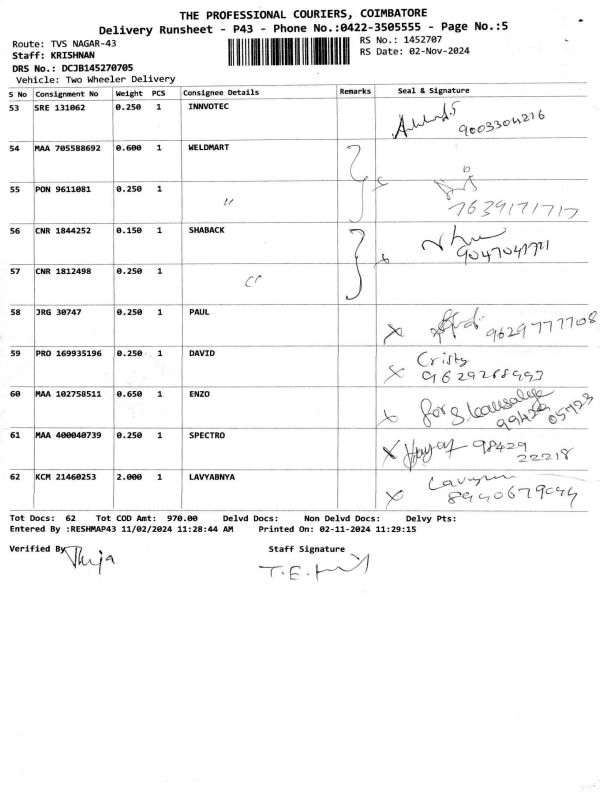 THE PROFESSIONAL COURIERS, COIMBATORE
Delivery Runsheet - P43 - Phone No.:0422-3505555 - Page No.:5
Route: TVS NAGAR-43
RS No.: 1452707
Staff: KRISHNAN
RS Date: 02-Nov-2024
DRS No.: DCJB145270705
Vehicle: Two Wheeler Delivery
S No Consignment No Weight PCS Consignee Details Remarks Seal & Signature
53 SRE 131062 0.250 1 INNVOTEC
9003304216
54 MAA 705588692 0.600 1 WELDMART
55 PON 9611081 0.250 1 "
7639171717
56 CNR 1844252 0.150 1 SHABACK
9047041721
57 CNR 1812498 0.250 1 "
58 JRG 30747 0.250 1 PAUL
x 9629777708
59 PRO 169935196 0.250 1 DAVID
x Cristy
9629268993
60 MAA 102758511 0.650 1 ENZO
x for S. Kausalya
99429
05723
61 MAA 400040739 0.250 1 SPECTRO
x 98429
22218
62 KCM 21460253 2.000 1 LAVYABNYA
x
8940679094
Tot Docs: 62 Tot COD Amt: 970.00 Delvd Docs: Non Delvd Docs: Delvy Pts:
Entered By :RESHMAP43 11/02/2024 11:28:44 AM Printed On: 02-11-2024 11:29:15
Verified By
Staff Signature